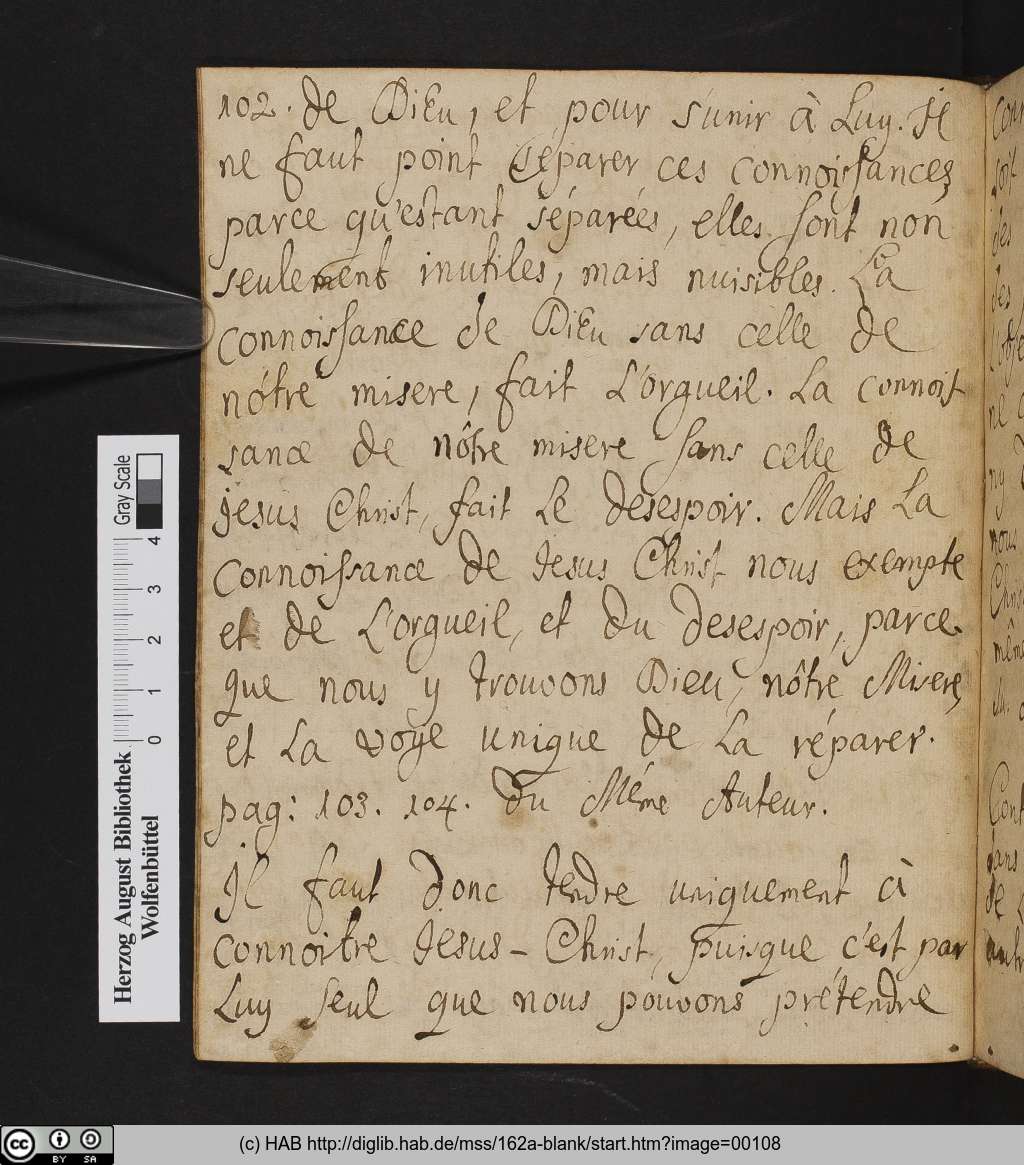 102. de Dieu, et pour s'unir à Luy. Il
ne faut point séparer ces connoissances,
parce qu'estant séparées, elles sont non
seulement inutiles, mais nuisibles. La
connoissance de Dieu sans celle de
nôtre misere, fait L'orgueil. La connois-
sance de nôtre misere sans celle de
Jesus Christ, fait Le desespoir. Mais La
connoissance de Jesus Christ nous exempte
et de L'orgueil, et du desespoir, parce
que nous y trouvons Dieu, nôtre Misere,
et La voye unique de La réparer.
pag: 103. 104. du Même Auteur.
Il faut donc tendre uniquement à
connoitre Jesus-Christ, puisque c'est par
Luy seul que nous pouvons prétendre
Gray Scale
0 1 2 3 4
Herzog August Bibliothek
Wolfenbüttel
cc BY SA
(c) HAB http://diglib.hab.de/mss/162a-blank/start.htm?image=00108